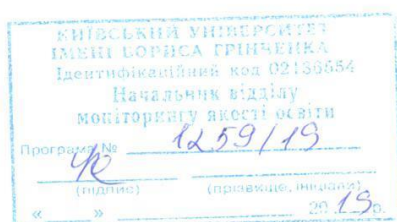 КИЇВСЬКИЙ УНІВЕРСИТЕТ
ІМЕНІ БОРИСА ГРІНЧЕНКА
Ідентифікаційний код 02136554
Начальник відділу
моніторингу якості освіти
Програма № 1259/19
(підпис) (прізвище, ініціали)
« » 20 19 р.